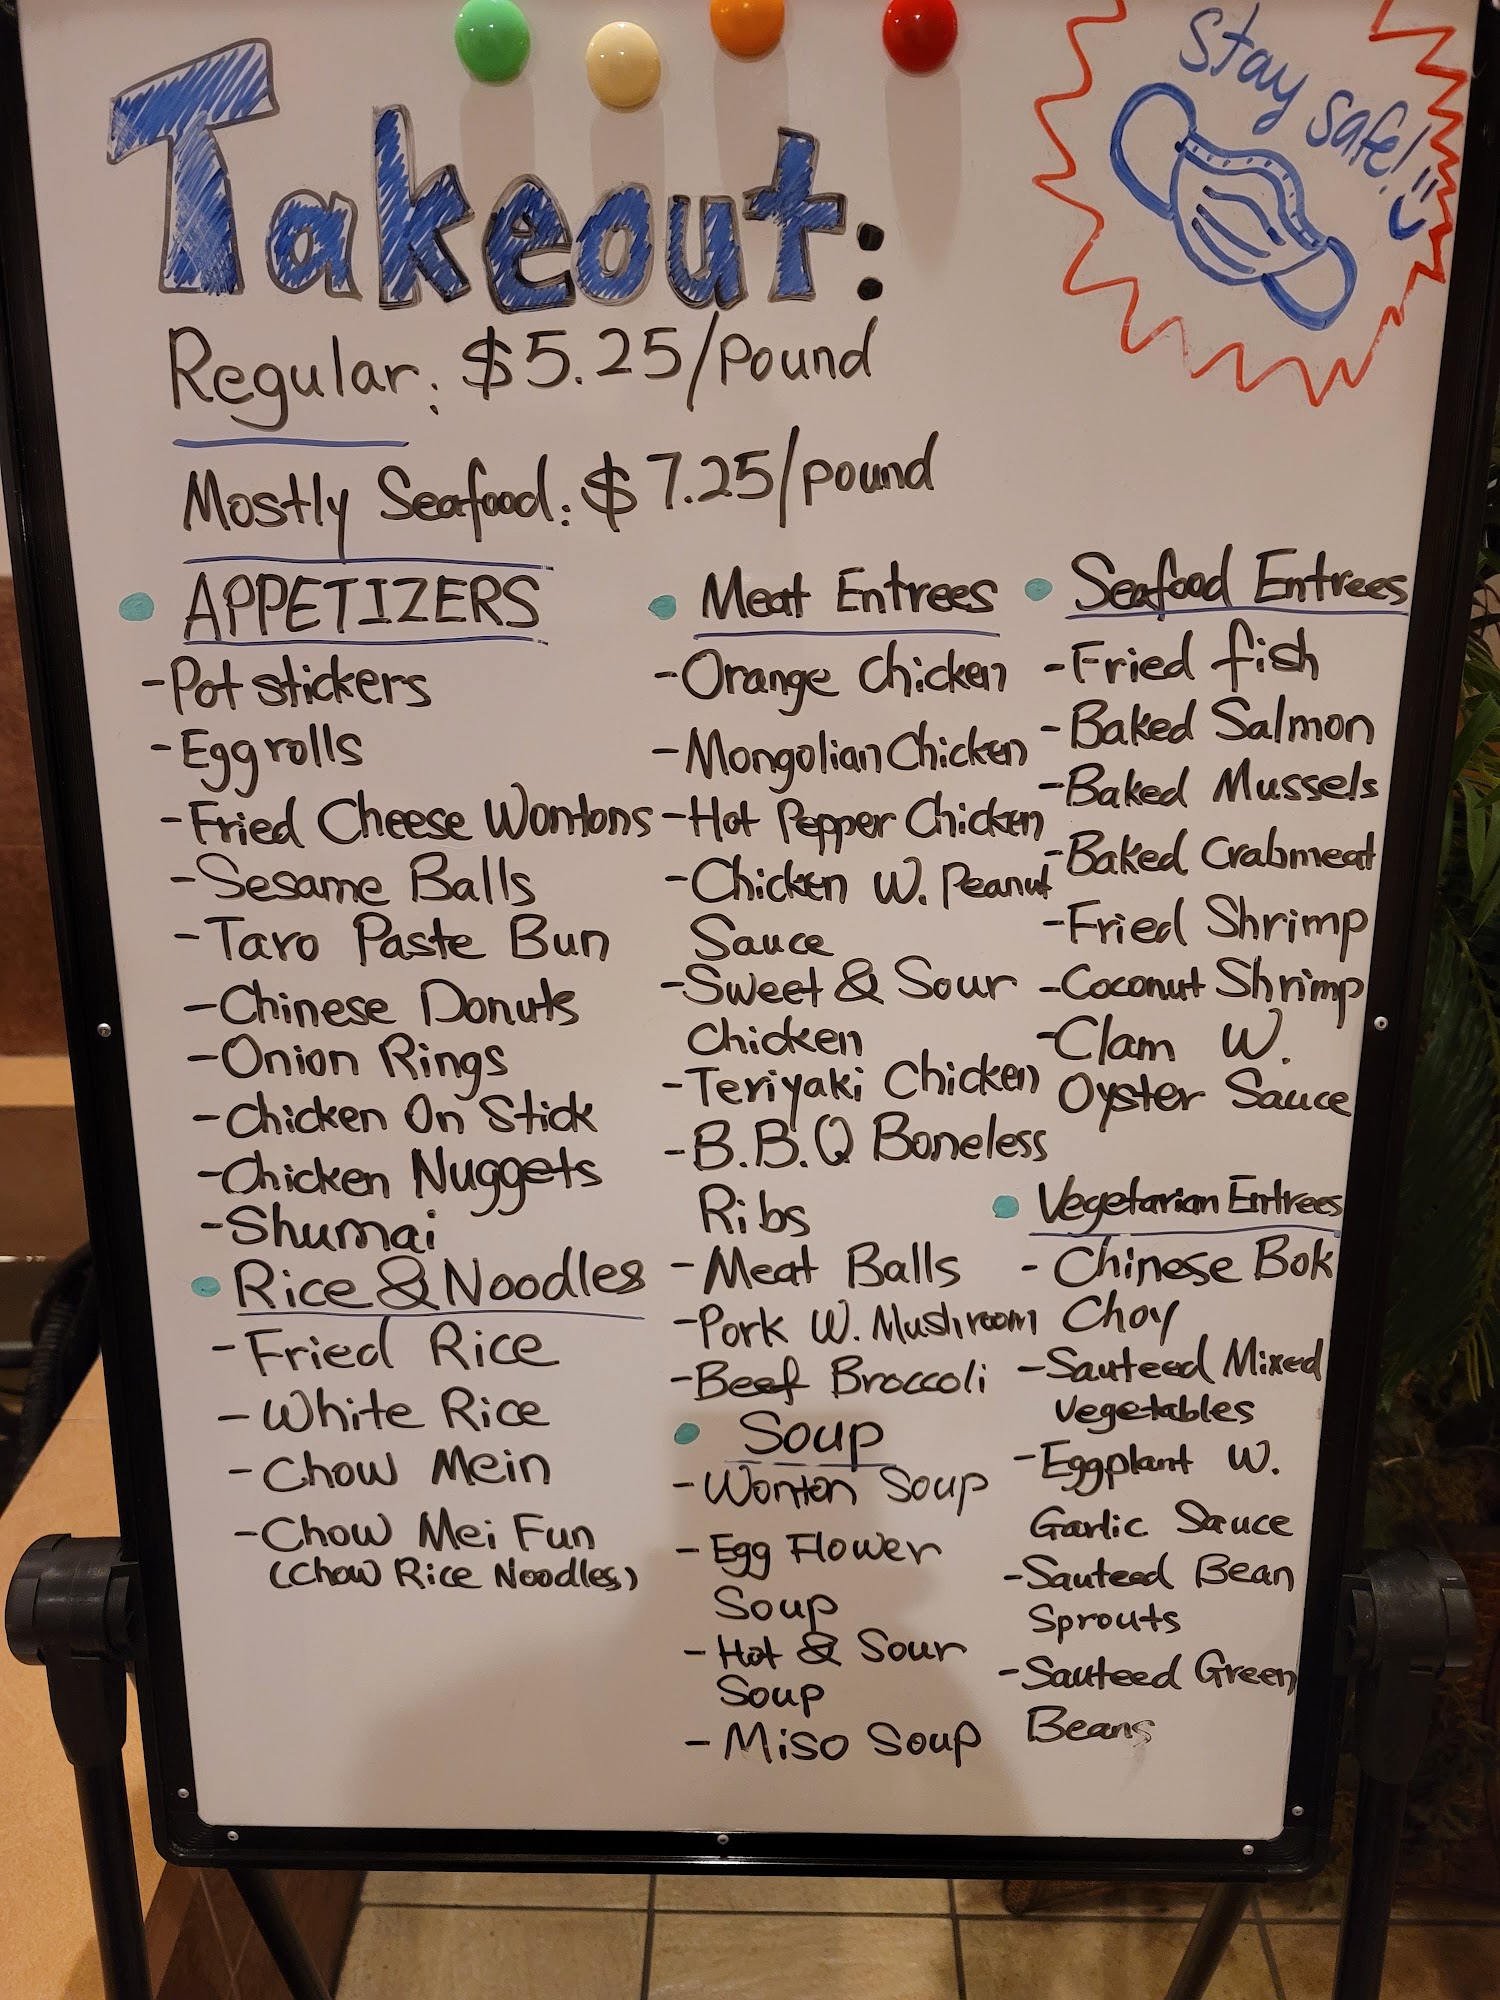 Stay safe!
Takeout:
Regular: $5.25/Pound
Mostly Seafood: $7.25/pound
APPETIZERS
-Pot stickers
-Egg rolls
-Fried Cheese Wontons
-Sesame Balls
-Taro Paste Bun
-Chinese Donuts
-Onion Rings
-Chicken On Stick
-Chicken Nuggets
-Shumai
Rice & Noodles
-Fried Rice
-White Rice
-Chow Mein
-Chow Mei Fun
(Chow Rice Noodles)
Meat Entrees
-Orange Chicken
-Mongolian Chicken
-Hot Pepper Chicken
-Chicken W. Peanut
Sauce
-Sweet & Sour
Chicken
-Teriyaki Chicken
-B.B.Q Boneless
Ribs
-Meat Balls
-Pork W. Mushroom
-Beef Broccoli
Soup
-Wonton Soup
-Egg Flower
Soup
-Hot & Sour
Soup
-Miso Soup
Seafood Entrees
-Fried fish
-Baked Salmon
-Baked Mussels
-Baked Crabmeat
-Fried Shrimp
-Coconut Shrimp
-Clam W.
Oyster Sauce
Vegetarian Entrees
-Chinese Bok
Choy
-Sauteed Mixed
Vegetables
-Eggplant W.
Garlic Sauce
-Sauteed Bean
Sprouts
-Sauteed Green
Beans